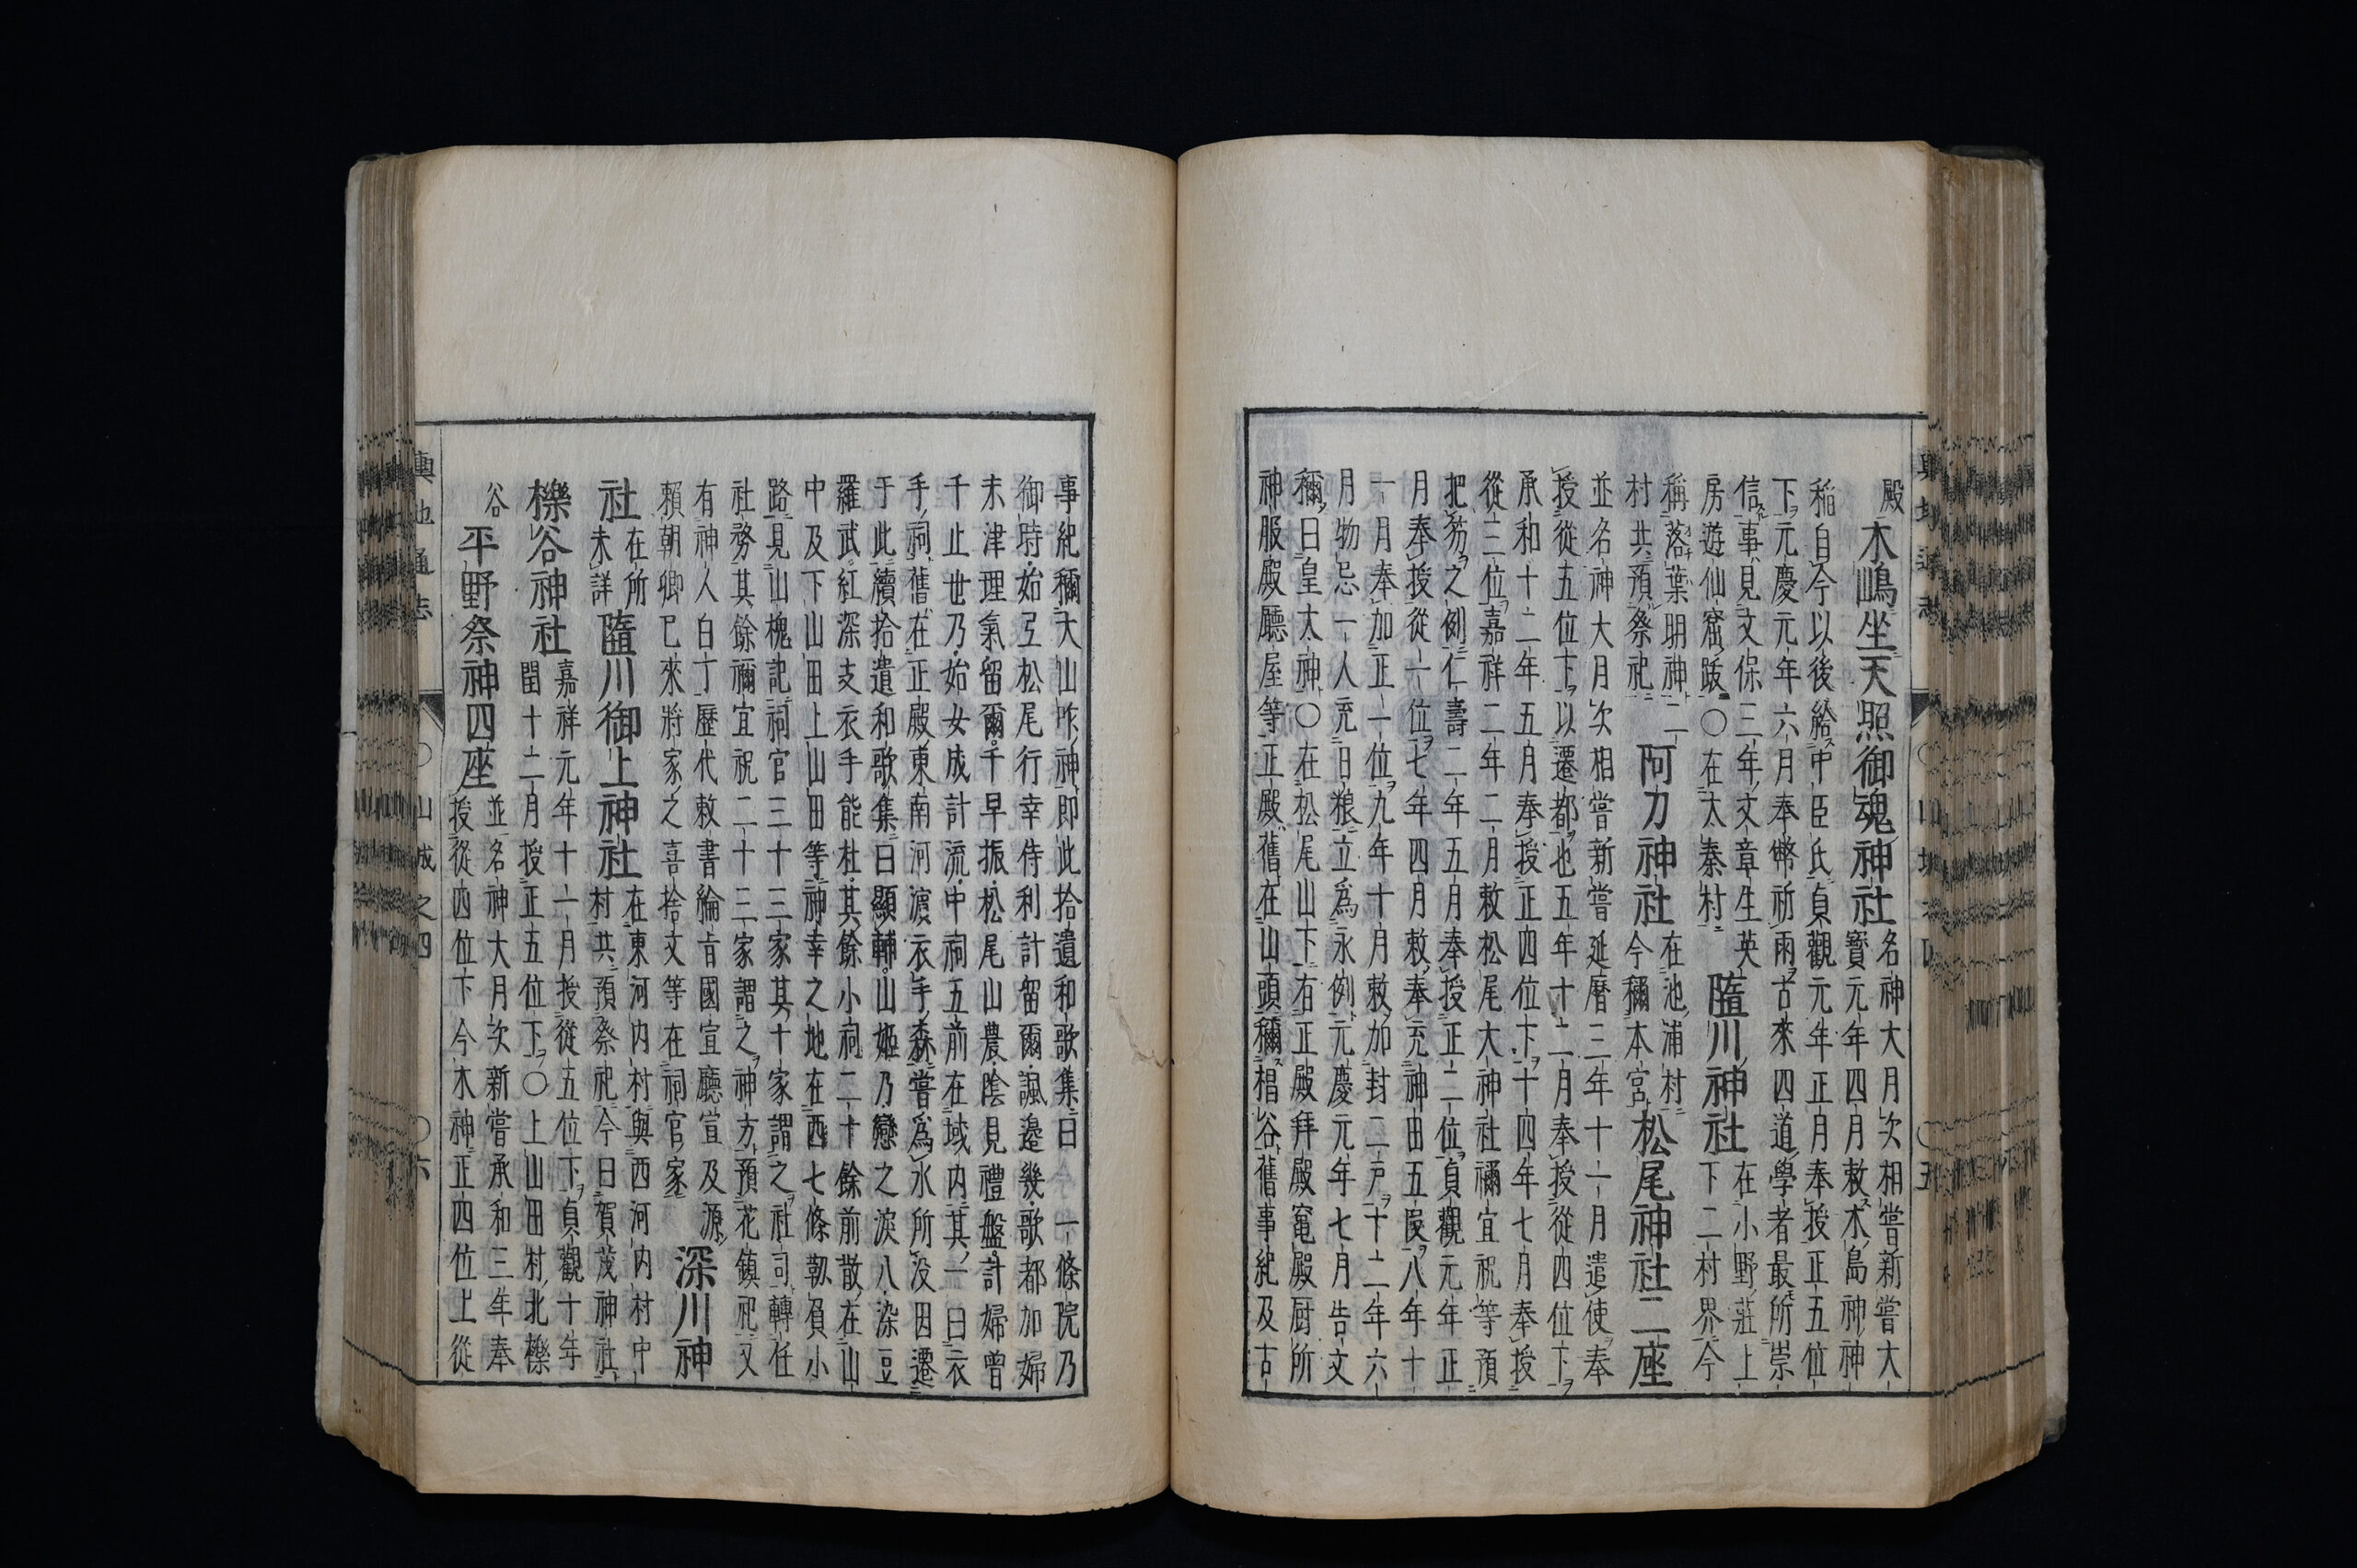 殿
木嶋坐天照御魂神社
名神大月次相嘗新嘗大
寶元年四月敕木島神神
稲自今以後給中臣氏貞觀元年正月奉授正五位
下元慶元年六月奉幣祈雨古來四道學者最所崇
信事見文保三年文章生英
房遊仙窟跋〇在太秦村
墮川神社
在小野莊上
下二村界今
稱落葉明神二
村共預祭祀
阿刀神社
在池浦村
今稱本宮
松尾神社二座
並名神大月次相嘗新嘗延曆三年十一月遣使奉
授從五位下以遷都也五年十二月奉授從四位下
承和十二年五月奉授正四位下十四年七月奉授
從三位嘉祥二年二月敕松尾大神社禰宜祝等預
把笏之例仁壽二年五月奉授正二位貞觀元年正
月奉授從一位七年四月敕奉充神田五段八年十
一月奉加正一位九年十月敕加封二戸十二年六
月物忌一人充日粮立爲永例元慶元年七月告文
稱曰皇太神〇在松尾山下有正殿拜殿竈殿厨所
神服殿廳屋等正殿舊在山頭稱椙谷舊事紀及古
事紀稱大山咋神即此拾遺和歌集曰一條院乃
御時始弖松尾行幸侍利計留爾諷邊幾歌都加婦
末津理氣留爾千早振松尾山農陰見禮盤計婦曾
千止世乃始女成計流中祠五前在域内其一曰衣
手祠舊在正殿東南河濵衣手森嘗爲水所没因遷
于此續拾遺和歌集曰顯輔山姬乃戀之淚八染豆
羅武紅深支衣手能杜其餘小祠二十餘前散在山
中及下山田上山田等神幸之地在西七條朝負小
路見山槐記祠官三十三家其十家謂之社司轉任
社務其餘禰宜祝二十三家謂之神方預花鎮祀又
有神人白丁歷代敕書綸旨國宣廳宣及源
賴朝卿已來將家之喜捨文等在祠官家
深川神
社
在所
未詳
墮川御上神社
在東河内村與西河内村中
村共預祭祀今曰賀茂神社
櫟谷神社
嘉祥元年十一月授從五位下貞觀十年
閏十二月授正五位下〇上山田村北櫟
谷
平野祭神四座
並名神大月次新嘗承和三年奉
授從四位下今木神正四位上從
輿地通志
〇山城之四
〇六